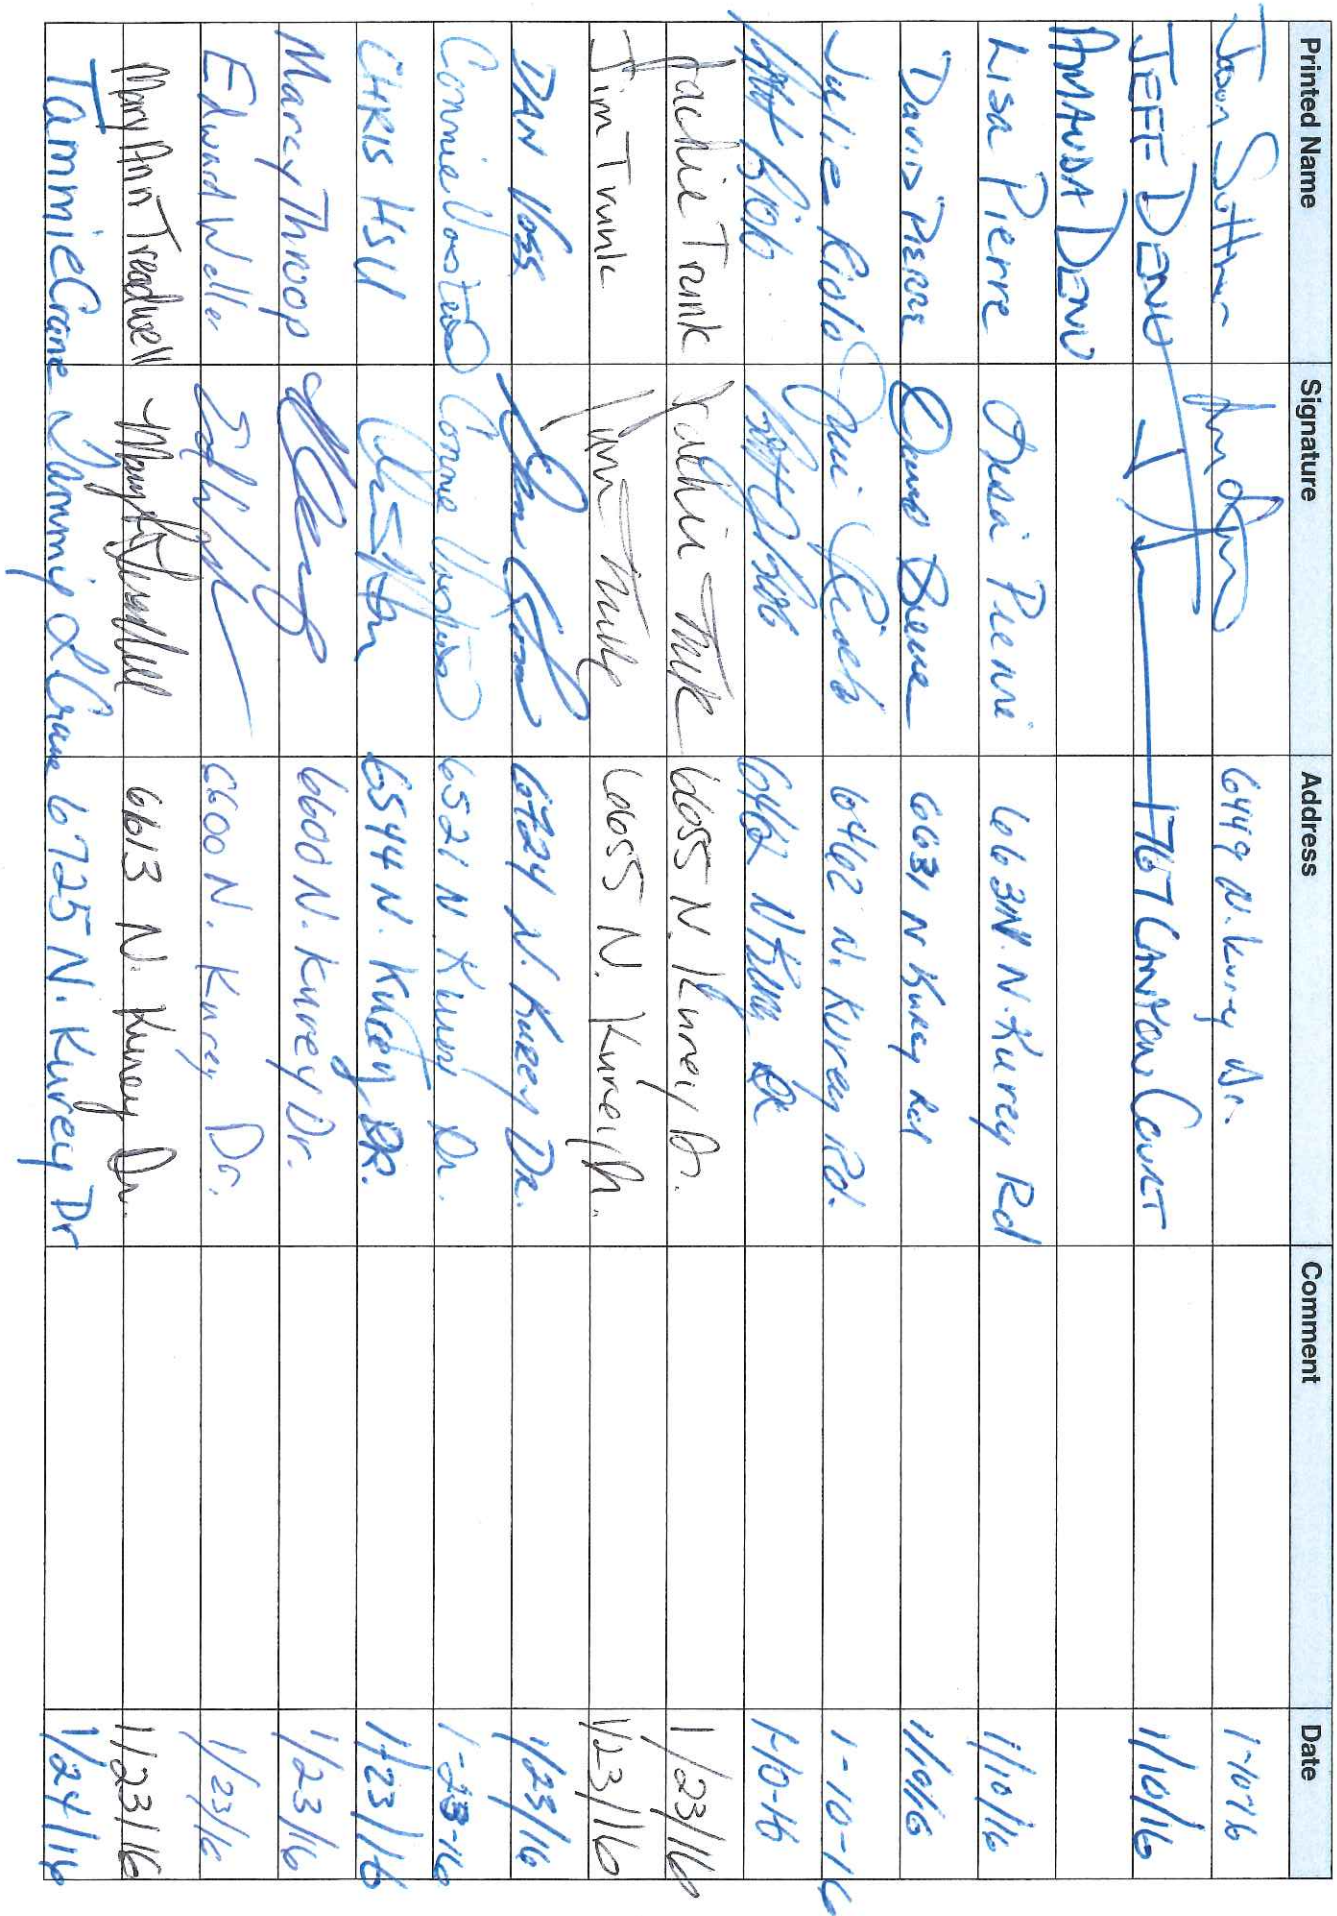 Printed Name Signature Address Comment Date
Jason 6449 N. Kurey Dr. 1-10-16
JEFF DENU 1767 CANYON COURT 1/10/16
AMANDA DENU
Lisa Pierre Lisa Pierre 6631 N. Kurey Rd 1/10/16
DAVID PIERRE David Pierre 6631 N Kurey Rd 1/10/16
Julie 6462 N. Kurey Rd. 1-10-16
6462 N Kurey DR 1-10-16
Jackie Trunk Jackie Trunk 6655 N. Kurey Dr. 1/23/16
Jim Trunk Jim Trunk 6655 N. Kurey Dr. 1/23/16
DAN VOSS 6724 N. Kurey DR. 1/23/16
Connie Connie 6521 N Kurey Dr. 1-23-16
CHRIS HSU 6544 N. Kurey DR. 1/23/16
Marcy Throop 6600 N. Kurey Dr. 1/23/16
Edward Weller 6600 N. Kurey Dr. 1/23/16
Mary Ann Treadwell 6613 N. Kurey Dr. 1/23/16
Tammie Crane Tammie L Crane 6725 N. Kurey Dr 1/24/16